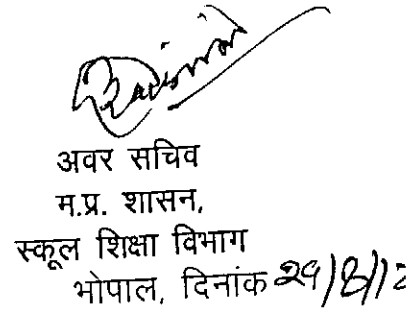 अवर सचिव
म.प्र. शासन,
स्कूल शिक्षा विभाग
भोपाल, दिनांक